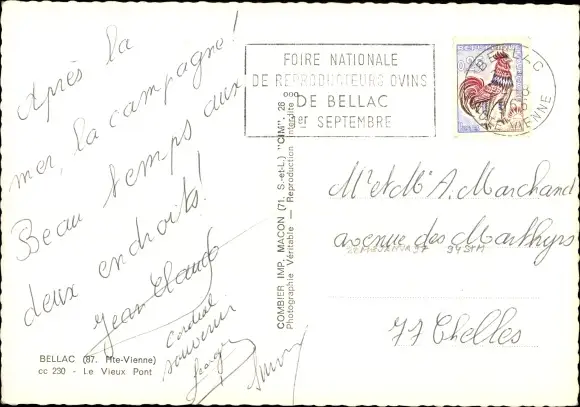 Après la
mer, la campagne!
Beau temps aux
deux endroits!
Jean Claude
cordial
souvenir
BELLAC (87. Hte-Vienne)
cc 230 - Le Vieux Pont
COMBIER IMP. MACON (71. S.-et-L.) "CIM".
Photographie Véritable — Reproduction Interdite
FOIRE NATIONALE
DE REPRODUCTEURS OVINS
DE BELLAC
1er SEPTEMBRE
BELLAC
VIENNE
Mr et Me A. Marchand
avenue des Marthyrs
77 Chelles